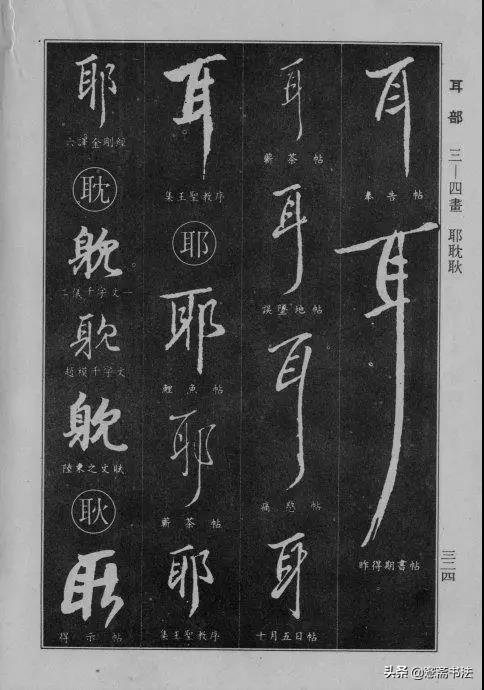 耳部 三—四畫 耶耽耿
三二四
耳
奉告帖
耳
昨得期書帖
耳
蘄茶帖
耳
誤墮地帖
耳
痛愍帖
耳
十月五日帖
耳
集王聖教序
耶
耶
鯉魚帖
耶
蘄茶帖
耶
集王聖教序
耶
六譯金剛經
耽
躭
千字文
躭
趙模千字文
躭
陸柬之文賦
耿
得示帖
头条@懑斋书法